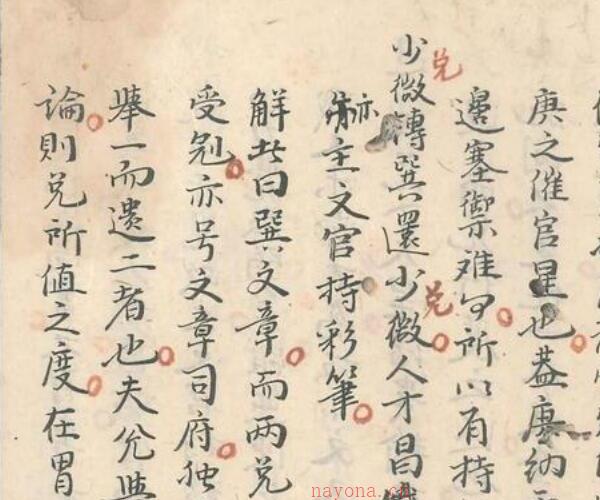 庚之催官星也葢庚納
邊塞禦难勾所以有持
少微轉巽還少微人才昌
兑
兑
亦主文官持彩筆
解此曰巽文章而两兑
受剋亦号文章司府独
舉一而遗二者也夫兊
論則兑所値之度在胃
nayona.cn